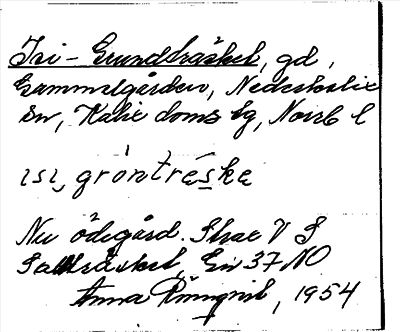 Isi-Grundträsket, gd,
Gammelgården, Nederkalix
sn, Kalix doms lg, Norrb l
ɩsɩ, gròntréske
Nu ödegård. Skae V S
träsket, Gn 37 NO
Anna Rönnqvist, 1954